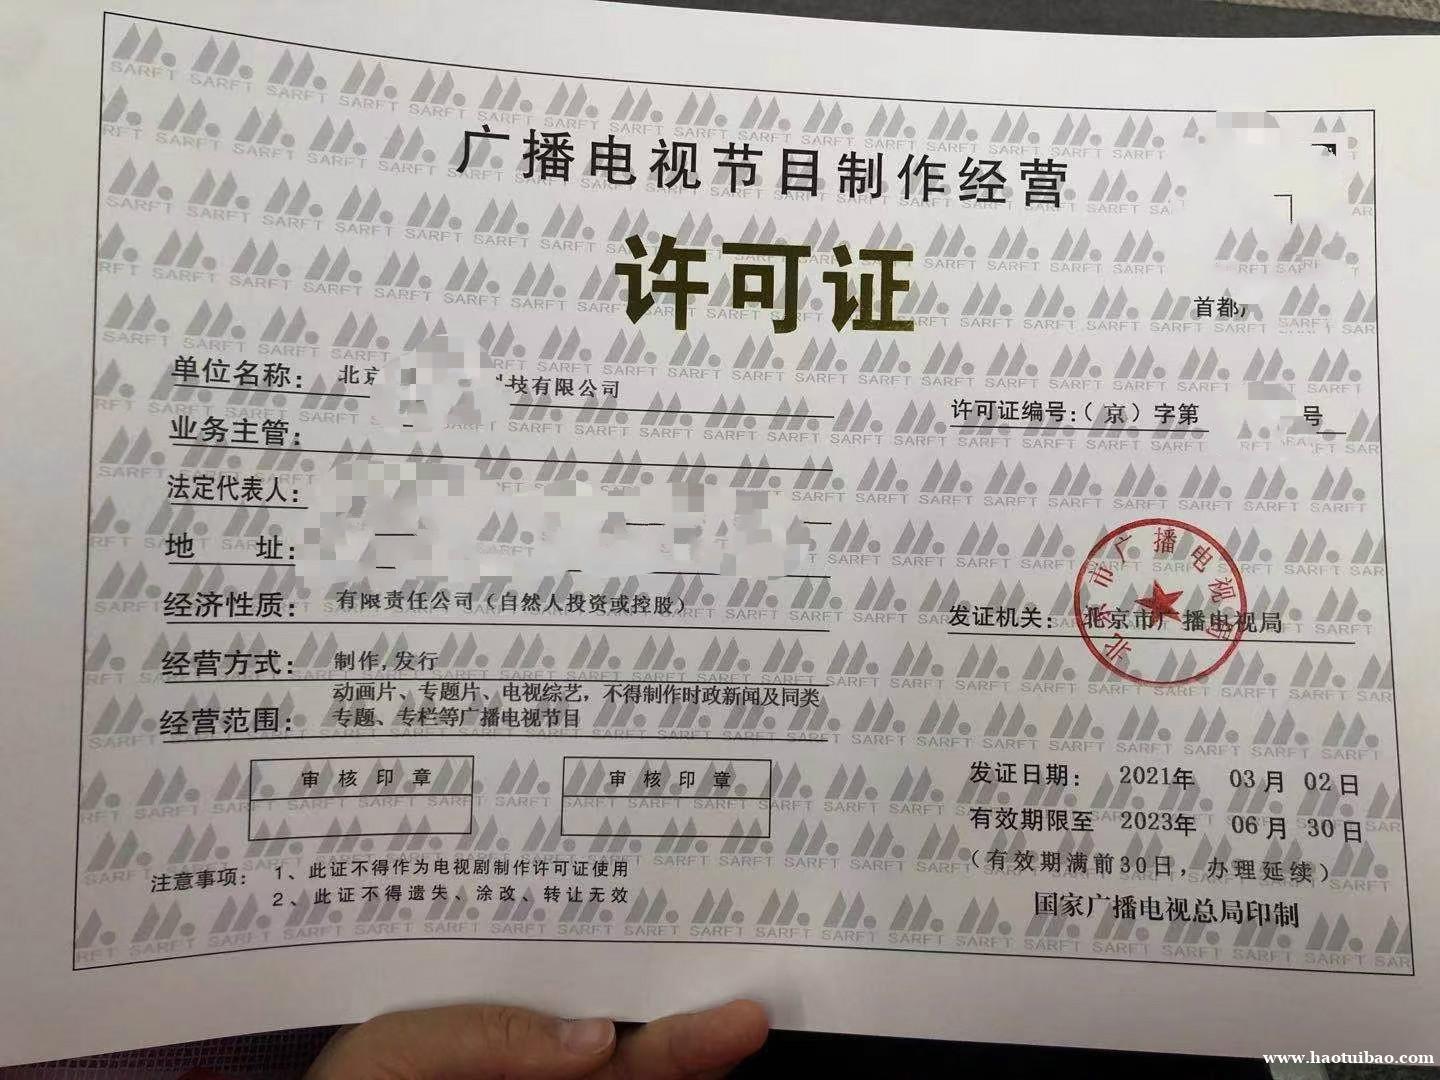 广播电视节目制作经营
许可证
首都
单位名称：北京 科技有限公司
许可证编号：（京）字第 号
业务主管：
法定代表人：
地 址：
经济性质：有限责任公司（自然人投资或控股）
发证机关：北京市广播电视局
北京市广播电视局
经营方式：制作,发行
经营范围：动画片、专题片、电视综艺，不得制作时政新闻及同类
专题、专栏等广播电视节目
审核印章
审核印章
发证日期： 2021年 03月 02日
有效期限至 2023年 06月 30日
（有效期满前30日，办理延续）
国家广播电视总局印制
注意事项：1、此证不得作为电视剧制作许可证使用
2、此证不得遗失、涂改、转让无效
SARFT
www.haotuibao.com